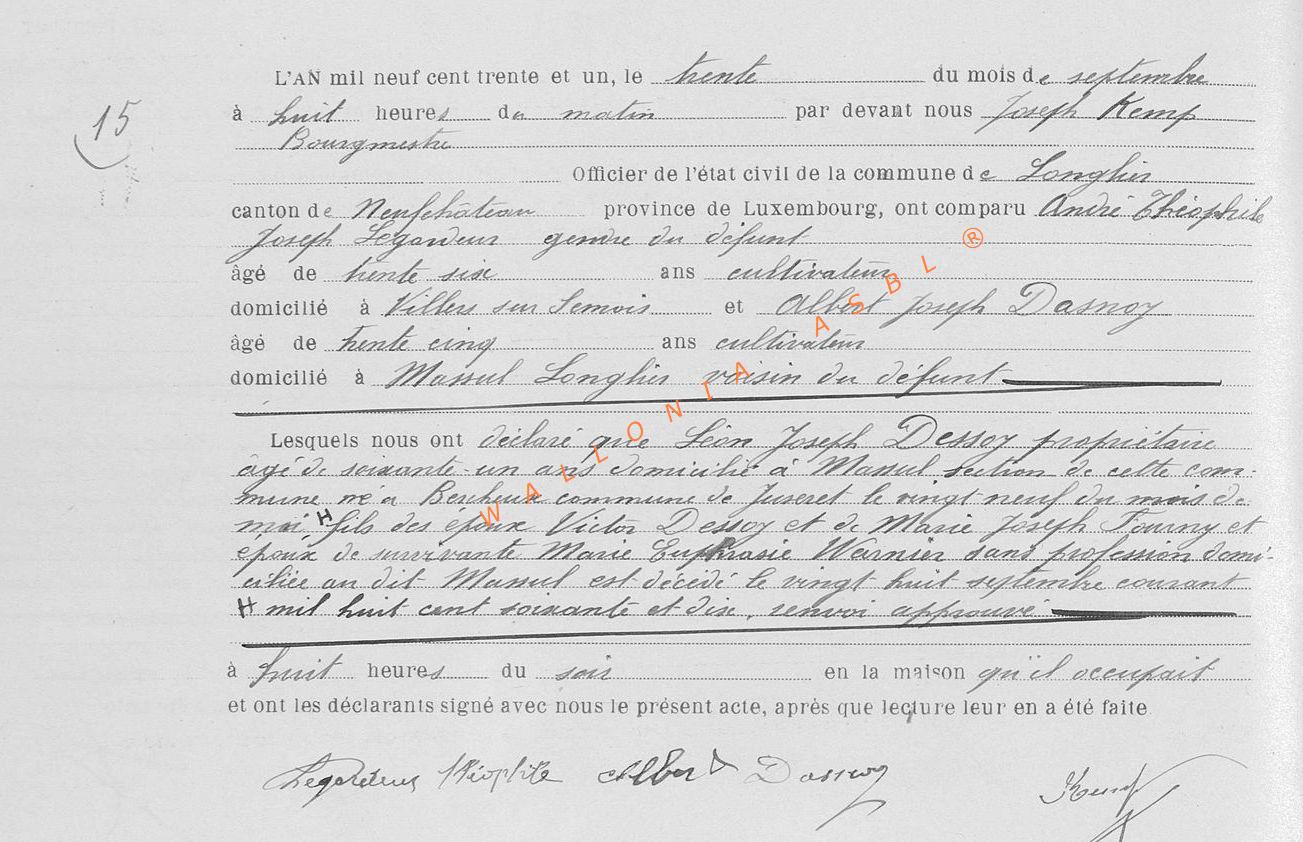 15
L'AN mil neuf cent trente et un, le trente du mois de septembre
à huit heures du matin par devant nous Joseph Kemp
Bourgmestre
Officier de l'état civil de la commune de Longlier
canton de Neufchâteau province de Luxembourg, ont comparu André Théophile
Joseph Legardeur gendre du défunt
âgé de trente six ans cultivateur
domicilié à Villers sur Semois et Albert Joseph Dasnoy
âgé de trente cinq ans cultivateur
domicilié à Massul Longlier voisin du défunt
Lesquels nous ont déclaré que Léon Joseph Dessoy propriétaire
âgé de soixante-un ans domicilié à Massul section de cette com-
mune né à Bercheux commune de Juseret le vingt neuf du mois de
mai, H fils des époux Victor Dessoy et de Marie Joseph Fourny et
époux de survivante Marie Euphrasie Warnier sans profession domi-
ciliée au dit Massul est décédé le vingt huit septembre courant
H mil huit cent soixante et dix, renvoi approuvé
à huit heures du soir en la maison qu'il occupait
et ont les déclarants signé avec nous le présent acte, après que lecture leur en a été faite
Legardeur Théophile Albert Dasnoy Kemp
WALLONIA ASBL ®